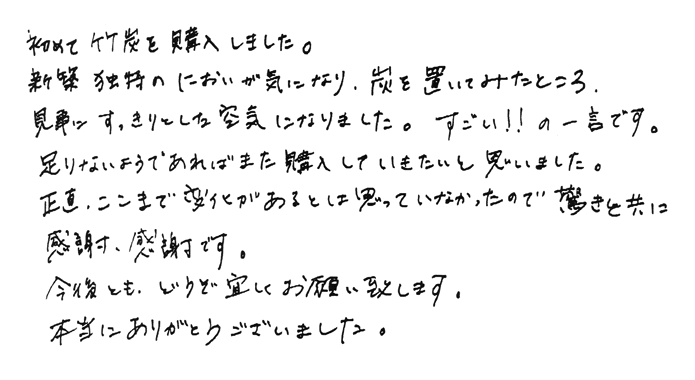 初めて竹炭を購入しました。
新築独特のにおいが気になり、炭を置いてみたところ、
見事にすっきりとした空気になりました。すごい!!の一言です。
足りないようであればまた購入していきたいと思いました。
正直、ここまで変化があるとは思っていなかったので驚きと共に
感謝、感謝です。
今後とも、どうぞ宜しくお願い致します。
本当にありがとうございました。